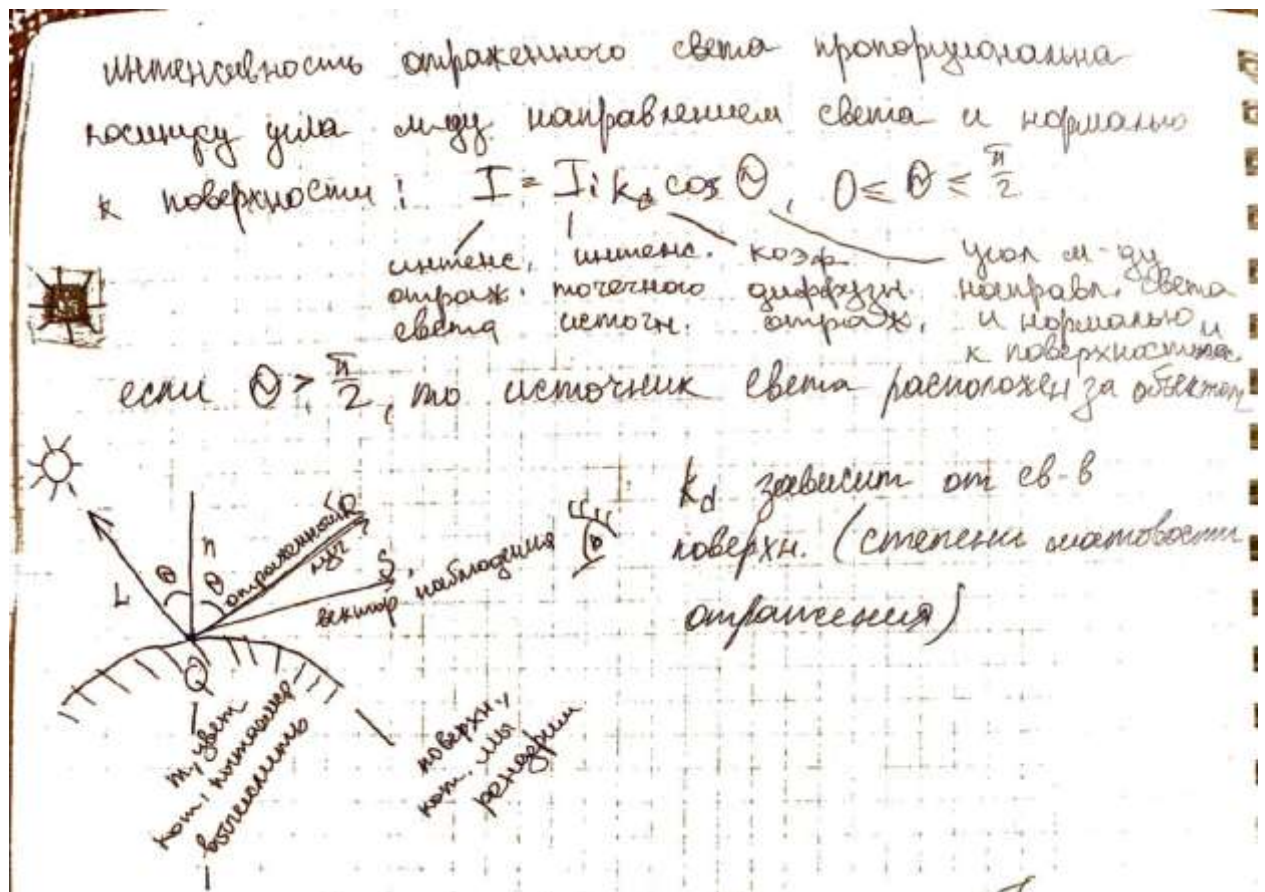 интенсивность отраженного света пропорциональна
косинусу угла м-ду направлением света и нормалью
к поверхности: I = Ii kd cos Θ, 0 ≤ Θ ≤ π/2
интенс. отраж. света
интенс. точечного источн.
коэф. диффузн. отраж.
угол м-ду направл. света и нормалью к поверхности
если Θ > π/2, то источник света расположен за объектом
kd зависит от св-в
поверхн. (степени матовости
отражения)
L
Θ
n
Θ
отраженный
луч
R
S
вектор наблюдения
Q
т, цвет
кот,
вычислить
поверхн.,
кот. мы
рендерим